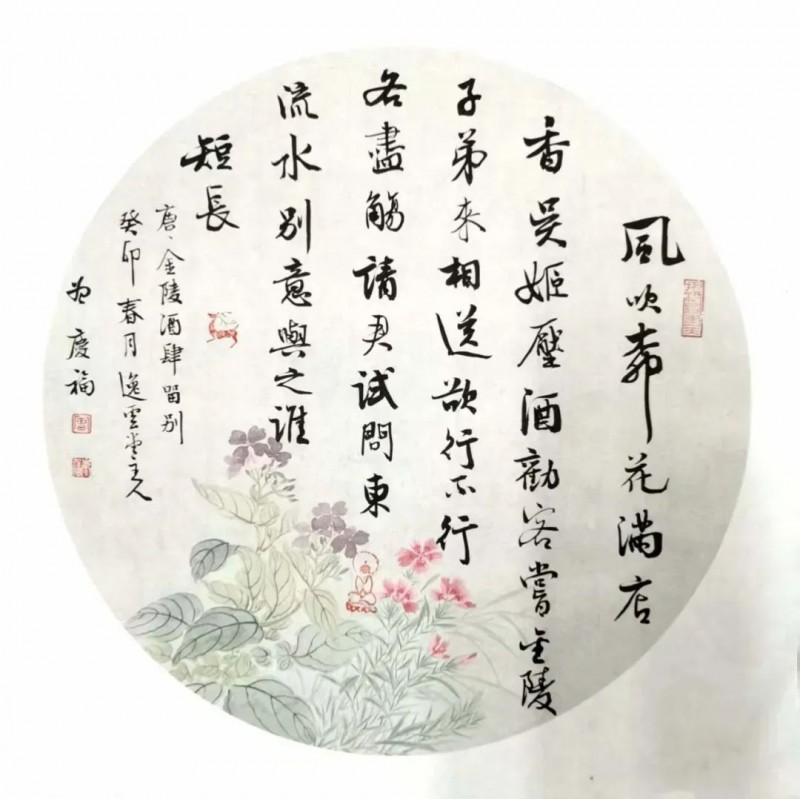 風吹柳花滿店
香吳姬壓酒勸客嘗金陵
子弟來相送欲行不行
各盡觴請君試問東
流水別意與之誰
短長
唐、金陵酒肆留别
癸卯春月逸雲堂主人
曾慶福